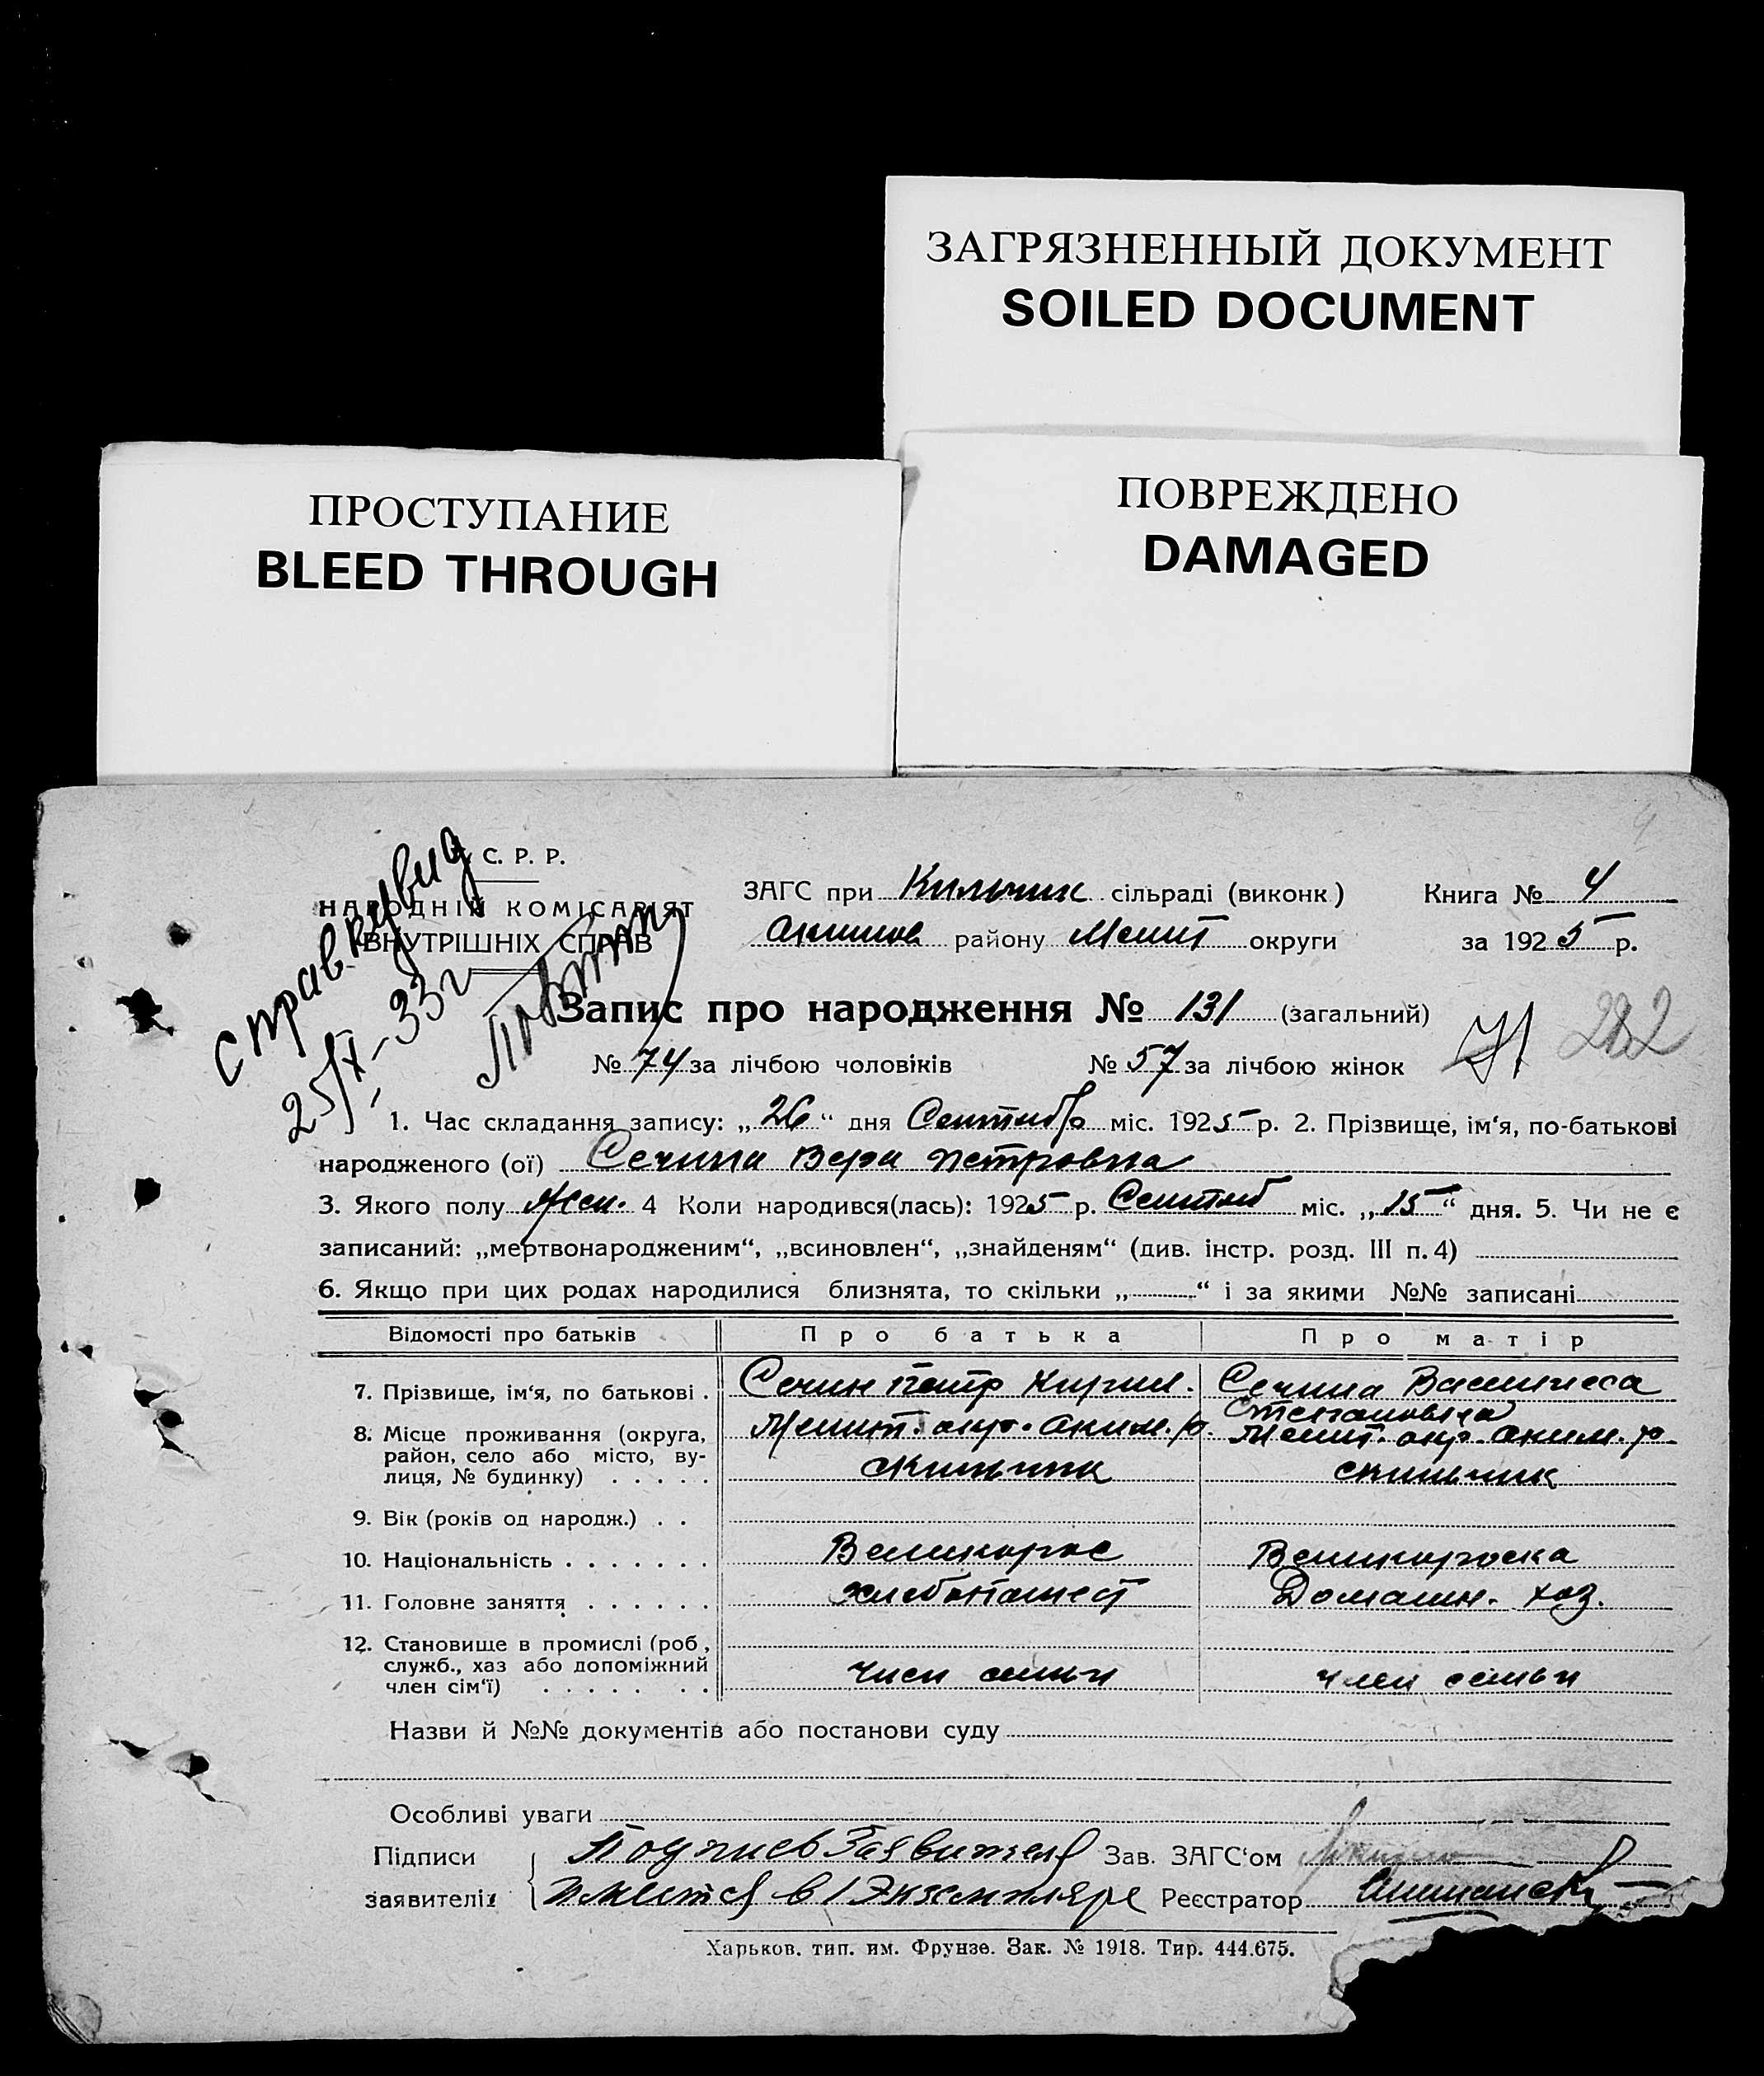 ЗАГРЯЗНЕННЫЙ ДОКУМЕНТ
SOILED DOCUMENT
ПРОСТУПАНИЕ
BLEED THROUGH
ПОВРЕЖДЕНО
DAMAGED
С. Р. Р.
НАРОДНІЙ КОМІСАРІЯТ
ВНУТРІШНІХ СПРАВ
справку вид
25/X-33г
ЗАГС при Кильчик сільраді (виконк)
Акимов району Мелит округи
Книга № 4
за 1925 р.
Запис про народження № 131 (загальний)
282
№ 74 за лічбою чоловіків № 57 за лічбою жінок
1. Час складання запису: „26“ дня Сентябр міс. 1925 р. 2. Прізвище, ім‘я, по-батькові
народженого (ої) Сечина Вера Петровна
3. Якого полу Жен. 4 Коли народився(лась): 1925 р. Сентяб міс. „15“ дня. 5. Чи не є
записаний: „мертвонародженим“, „всиновлен“, „знайденям“ (див. інстр. розд. III п. 4)
6. Якщо при цих родах народилися близнята, то скільки „ “ і за якими №№ записані
Відомості про батьків Про батька Про матір
7. Прізвище, ім‘я, по батькові . Сечин Петр Кирил. Сечина Василиса
Степановна
8. Місце проживання (округа, Мелит. окр. Аким. р. Мелит. окр. Аким. р.
район, село або місто, ву-
лиця, № будинку) . . . . . с Кильчик с Кильчик
9. Вік (років од народж.) . .
10. Національність . . . . . . . Великорос Великороска
11. Головне заняття . . . . . . Хлебопашест Домашн. хоз.
12. Становище в промислі (роб,
служб., хаз або допоміжний член семьи член семьи
член сім‘ї) . . . . . . .
Назви й №№ документів або постанови суду
Особливі уваги
Підписи Подпись Заявителя Зав. ЗАГС‘ом
заявителів имеется в 1 Экземпляре Реєстратор
Харьков. тип. им. Фрунзе. Зак. № 1918. Тир. 444.675.